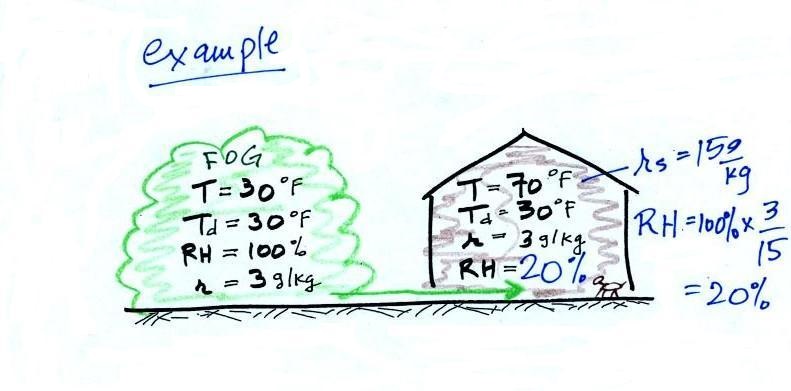 example
FOG
T = 30 °F
Td = 30 °F
RH = 100 %
r = 3 g/kg
T = 70 °F
Td = 30 °F
r = 3 g/kg
RH = 20%
rs = 15 g/kg
RH = 100% x 3/15
= 20%